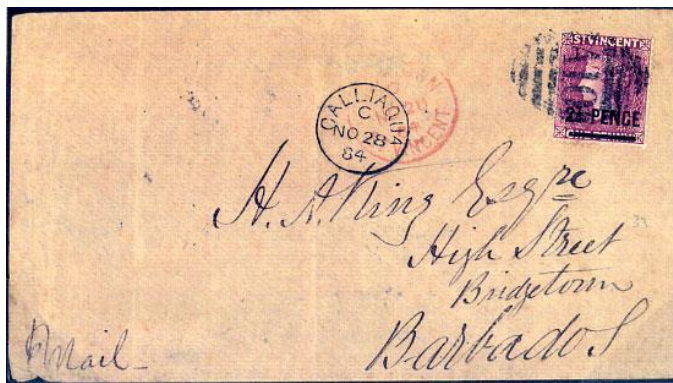 ST VINCENT
2½ PENCE
ONE PENNY
CALLIAQUA
C
NO 28
84
VINCENT
H. A. King Esqre
High Street
Bridgetown
Barbados
Mail